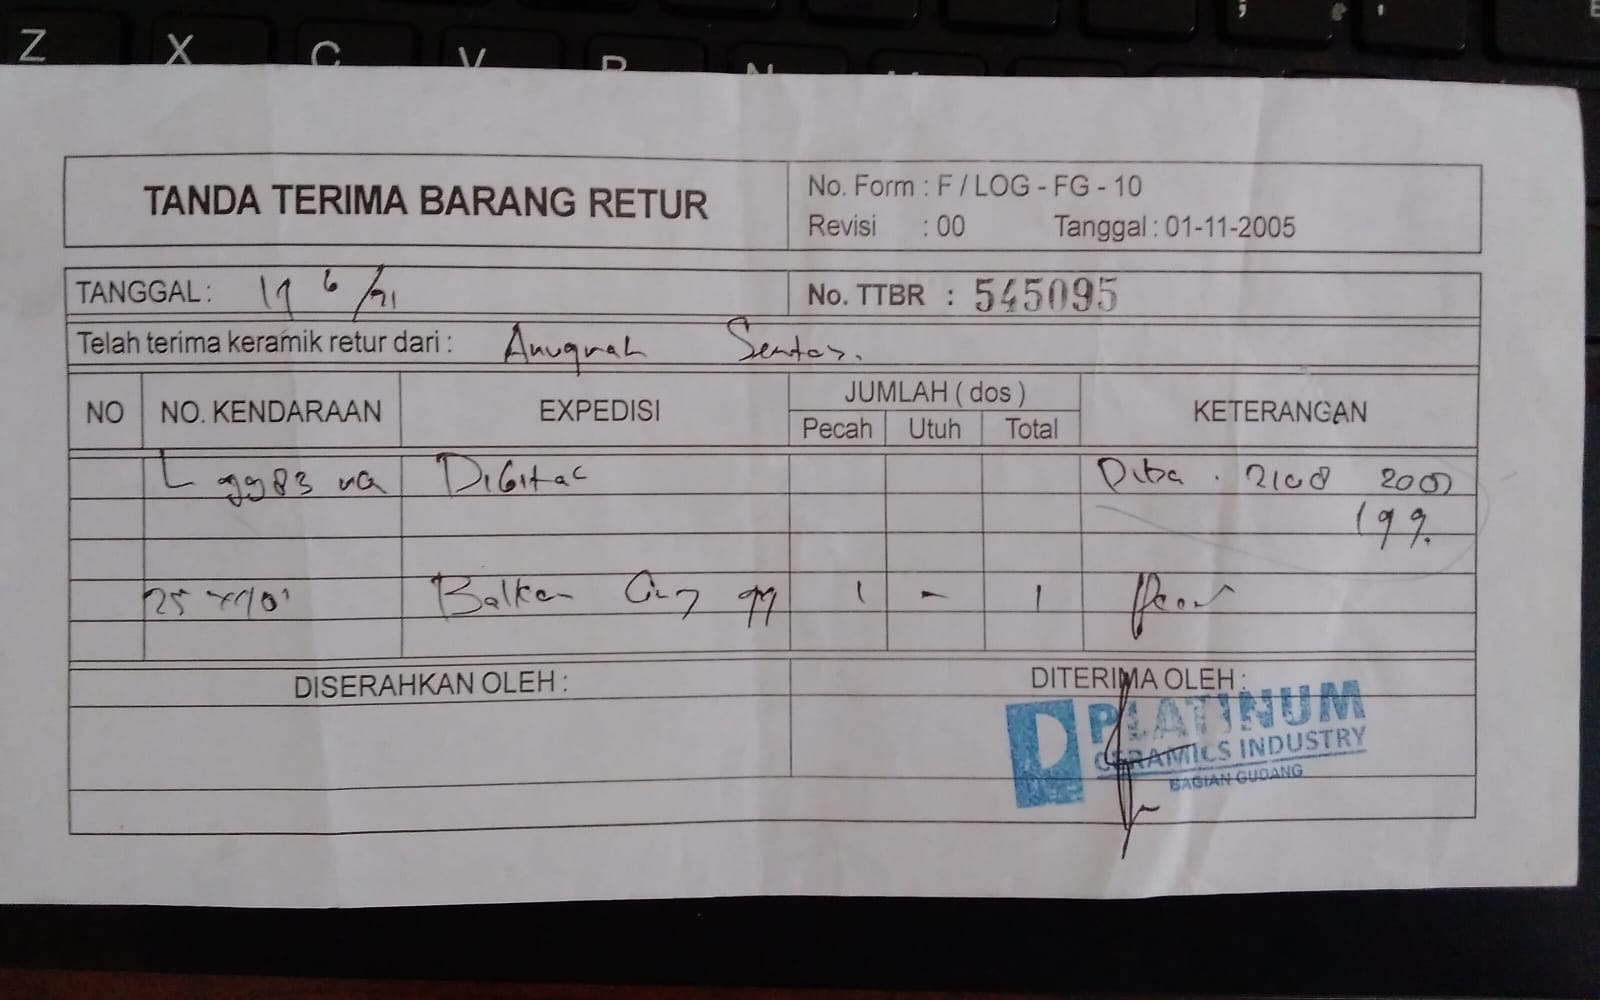 Z X C V B N
TANDA TERIMA BARANG RETUR
No. Form : F / LOG - FG - 10
Revisi : 00 Tanggal : 01-11-2005
TANGGAL :
No. TTBR : 545095
Telah terima keramik retur dari : Anugrah Sentos.
NO NO. KENDARAAN EXPEDISI JUMLAH ( dos ) KETERANGAN
Pecah Utuh Total
L 9983 Digital 2108 2000
199.
25 x 40 Balkan Grey 1 - 1
DISERAHKAN OLEH :
DITERIMA OLEH :
PLATINUM
CERAMICS INDUSTRY
BAGIAN GUDANG